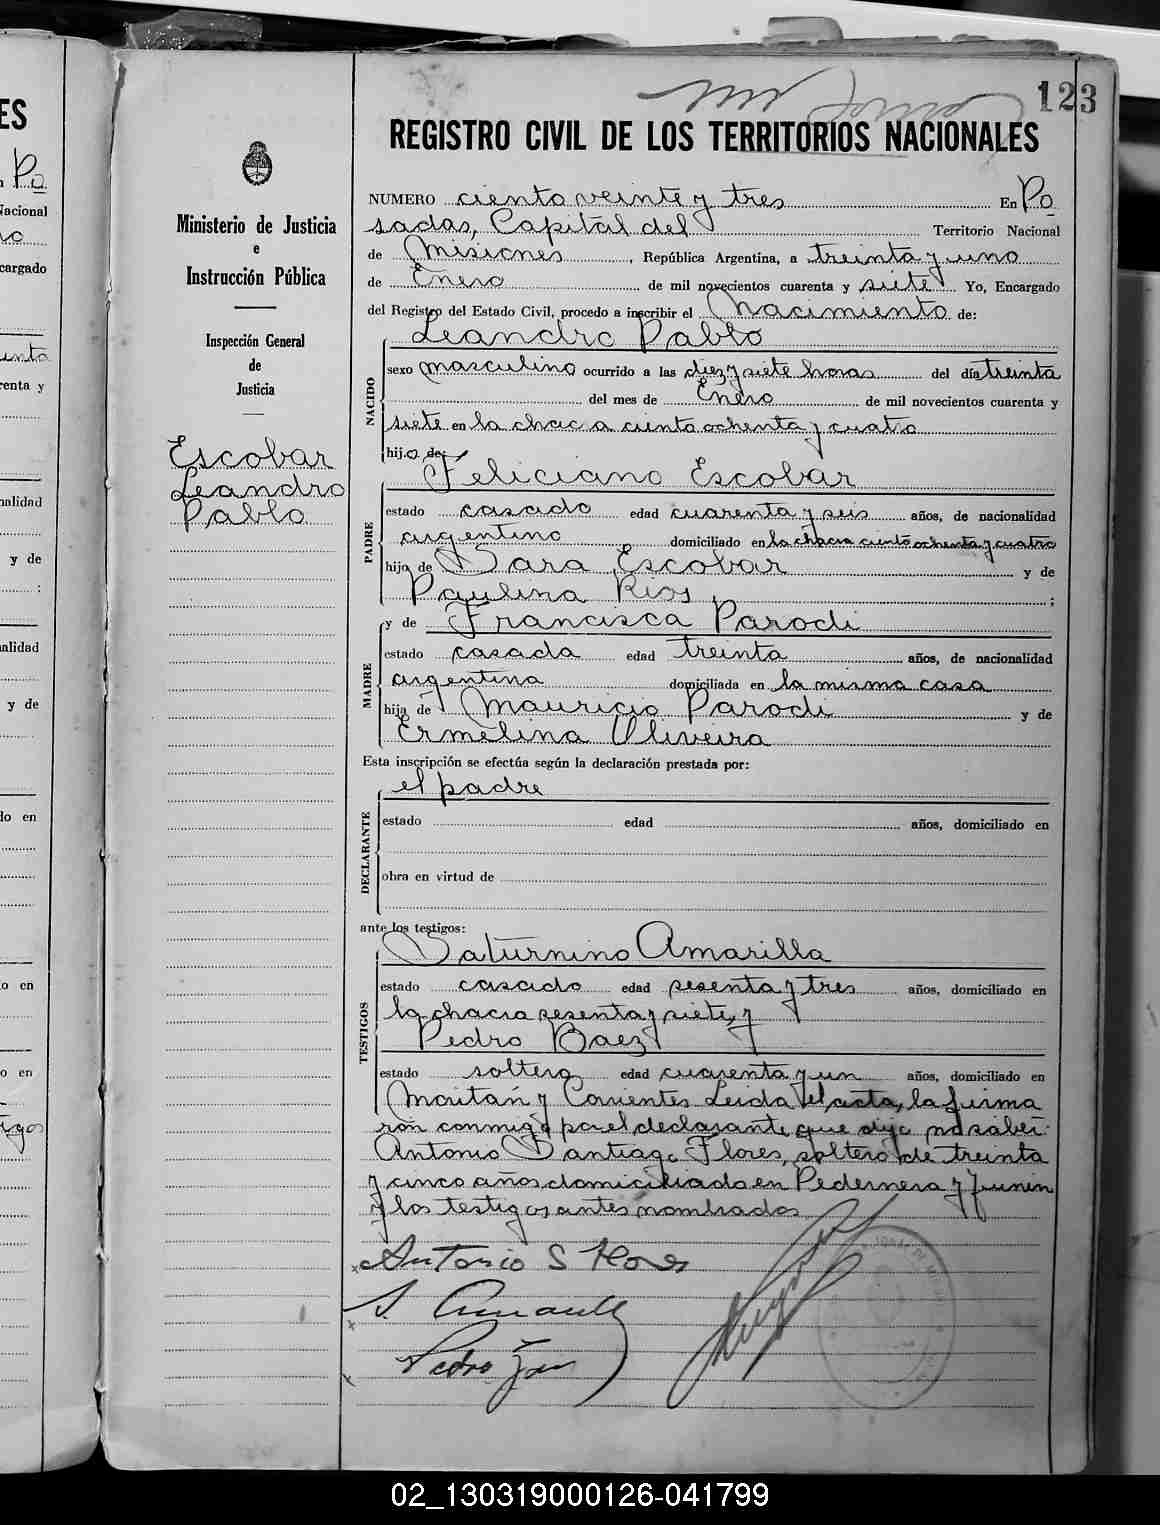 123
REGISTRO CIVIL DE LOS TERRITORIOS NACIONALES
Ministerio de Justicia
e
Instrucción Pública
Inspección General
de
Justicia
Escobar
Leandro
Pablo
NUMERO ciento veinte y tres En Po
sadas, Capital del Territorio Nacional
de Misiones, República Argentina, a treinta y uno
de Enero de mil novecientos cuarenta y siete Yo, Encargado
del Registro del Estado Civil, procedo a inscribir el Nacimiento de:
Leandro Pablo
NACIDO
sexo masculino ocurrido a las diez y siete horas del día treinta
del mes de Enero de mil novecientos cuarenta y
siete en la chac a ciento ochenta y cuatro
hijo de
Feliciano Escobar
PADRE
estado casado edad cuarenta y seis años, de nacionalidad
argentino domiciliado en la chacra ciento ochenta y cuatro
hijo de Sara Escobar y de
Paulina Rios ;
y de Francisca Parodi
MADRE
estado casada edad treinta años, de nacionalidad
argentina domiciliada en la misma casa
hija de Mauricio Parodi y de
Ermelina Oliveira
Esta inscripción se efectúa según la declaración prestada por:
el padre
DECLARANTE
estado edad años, domiciliado en
obra en virtud de
ante los testigos:
Saturnino Amarilla
TESTIGOS
estado casado edad sesenta y tres años, domiciliado en
la chacra sesenta y siete, y
Pedro Baez
estado soltero edad cuarenta y un años, domiciliado en
Maitán y Corrientes Leida el acta, la firma
ron conmigo por el declarante que dijo no saber
Antonio Santiago Flores, soltero de treinta
y cinco años domiciliado en Pedernera y Junin
y los testigos antes nombrados
Antonio S Flores
Pedro
ES
n Po
Nacional
cargado
enta y
nalidad
y de
:
nalidad
y de
do en
o en
o en
tigos
02_130319000126-041799